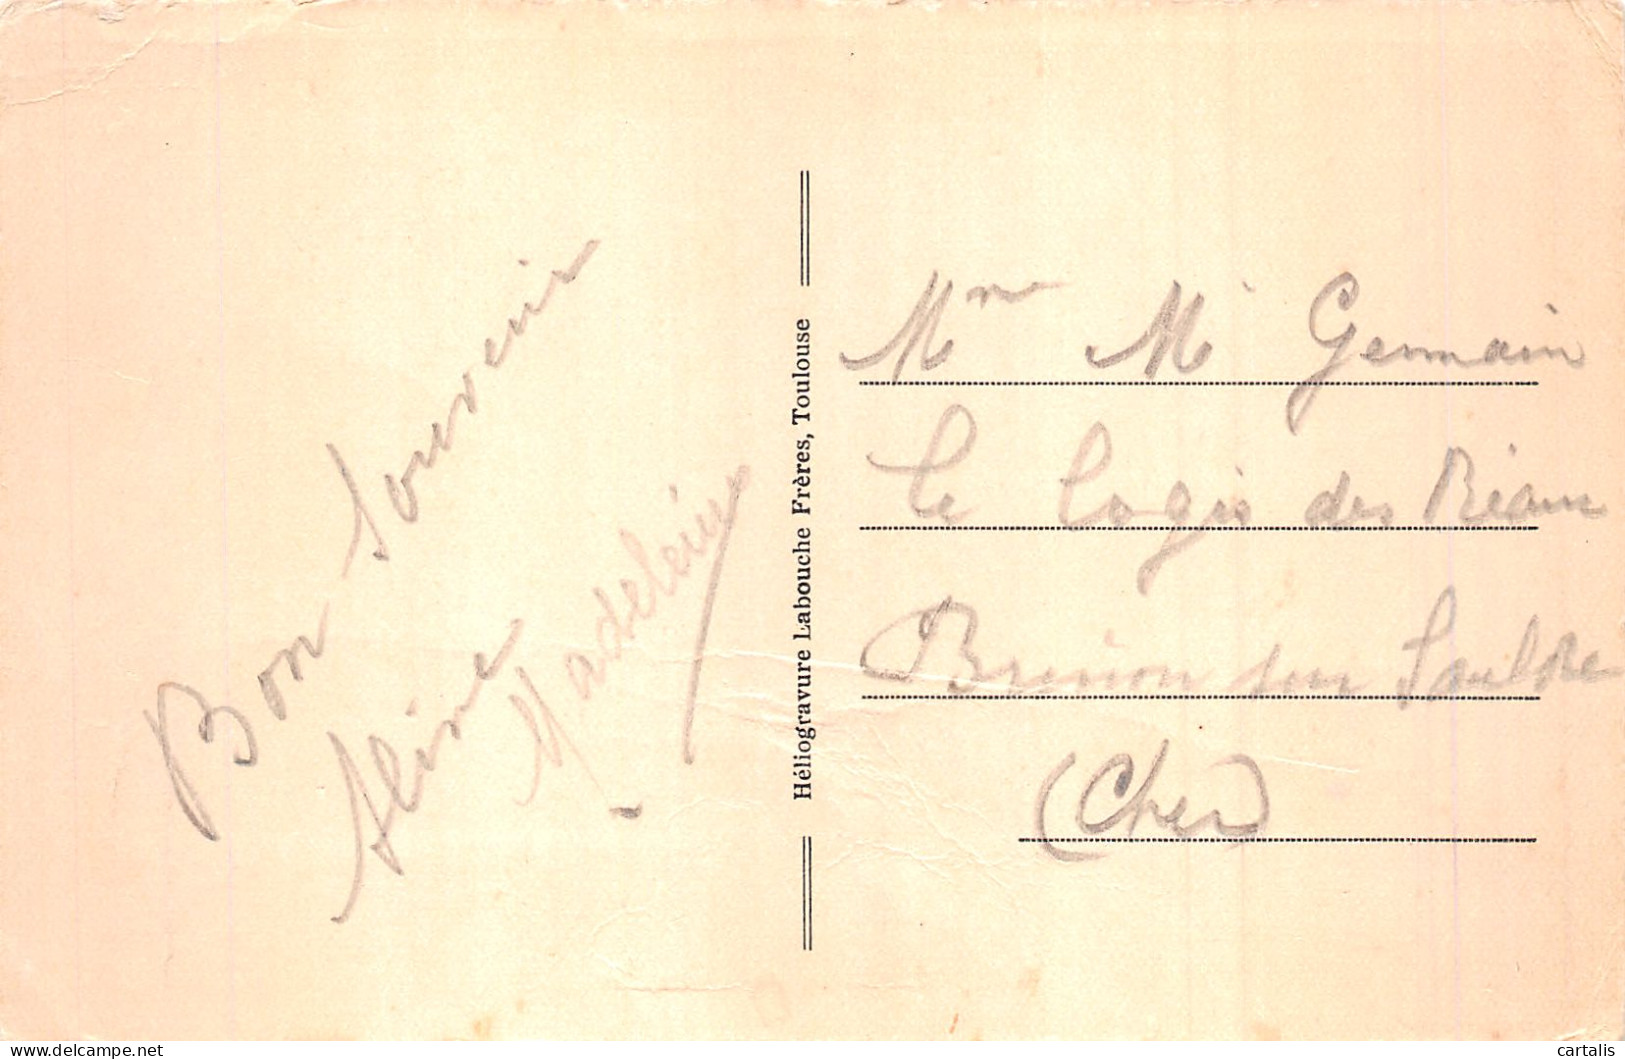 Bon Souvenir
Aline
Madeleine
Héliogravure Labouche Frères, Toulouse
Mme M Germain
le logis des
Brinon sur Sauldre
(Cher)
www.delcampe.net
cartalis